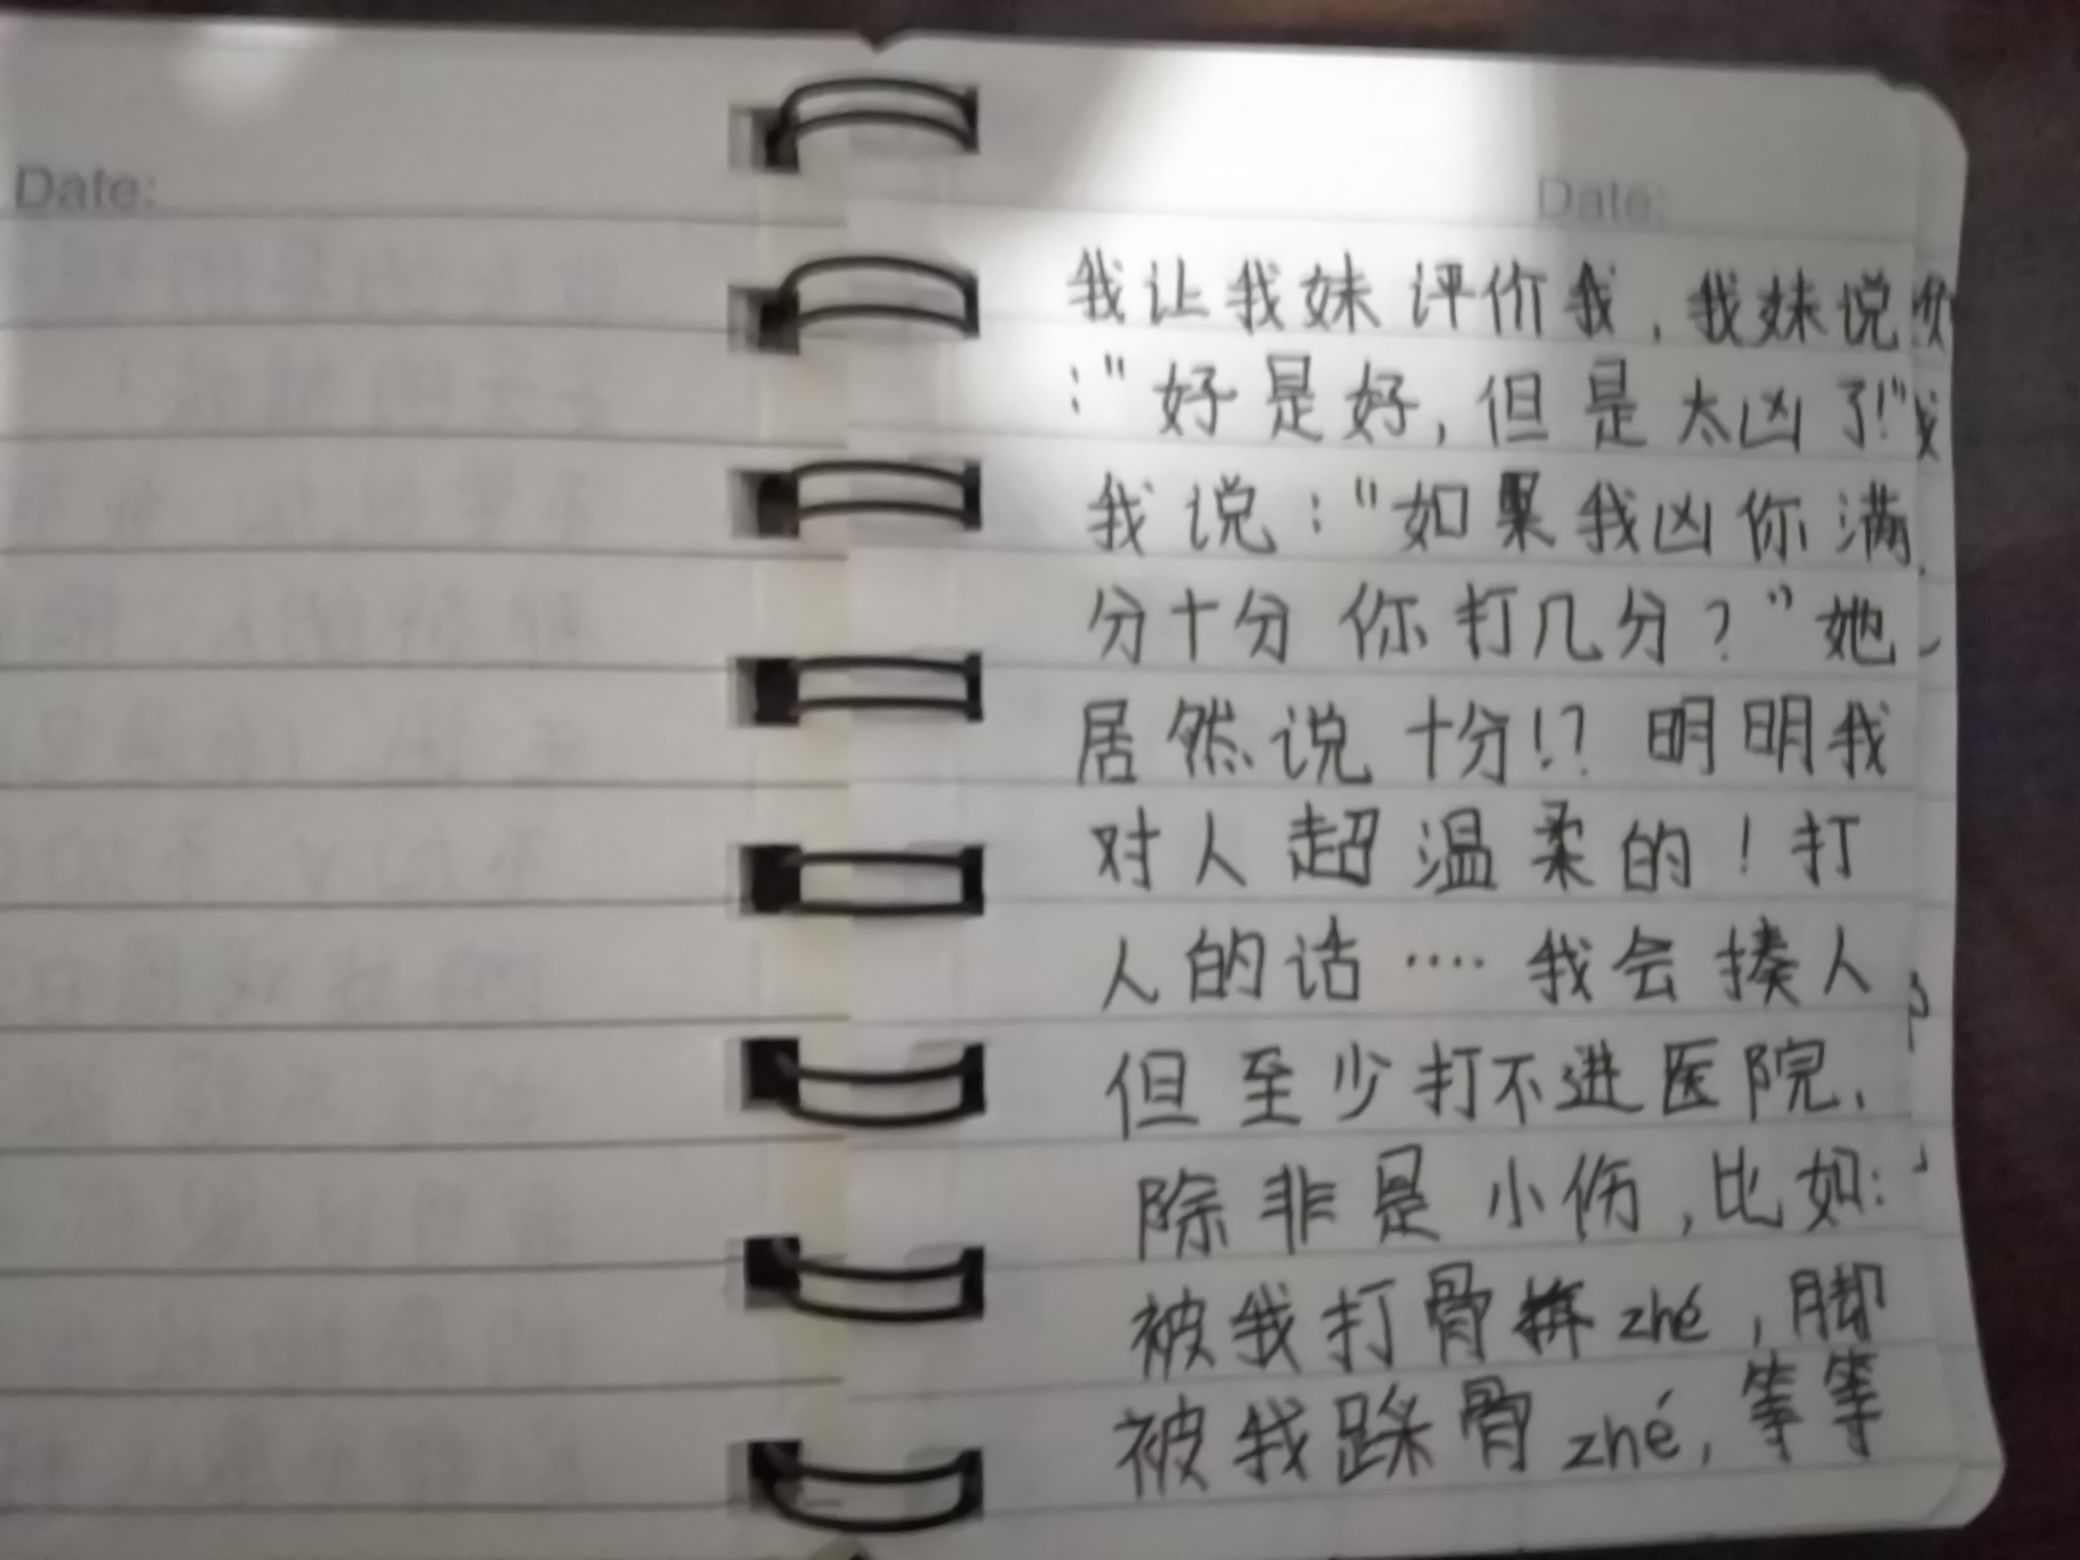 Date:
Date:
我让我妹评价我，我妹说
："好是好，但是太凶了!"
我说："如果我凶你满
分十分你打几分？"她
居然说十分!？明明我
对人超温柔的！打
人的话····我会揍人
但至少打不进医院.
除非是小伤，比如：
被我打骨zhé，脚
被我踩骨zhé，等等